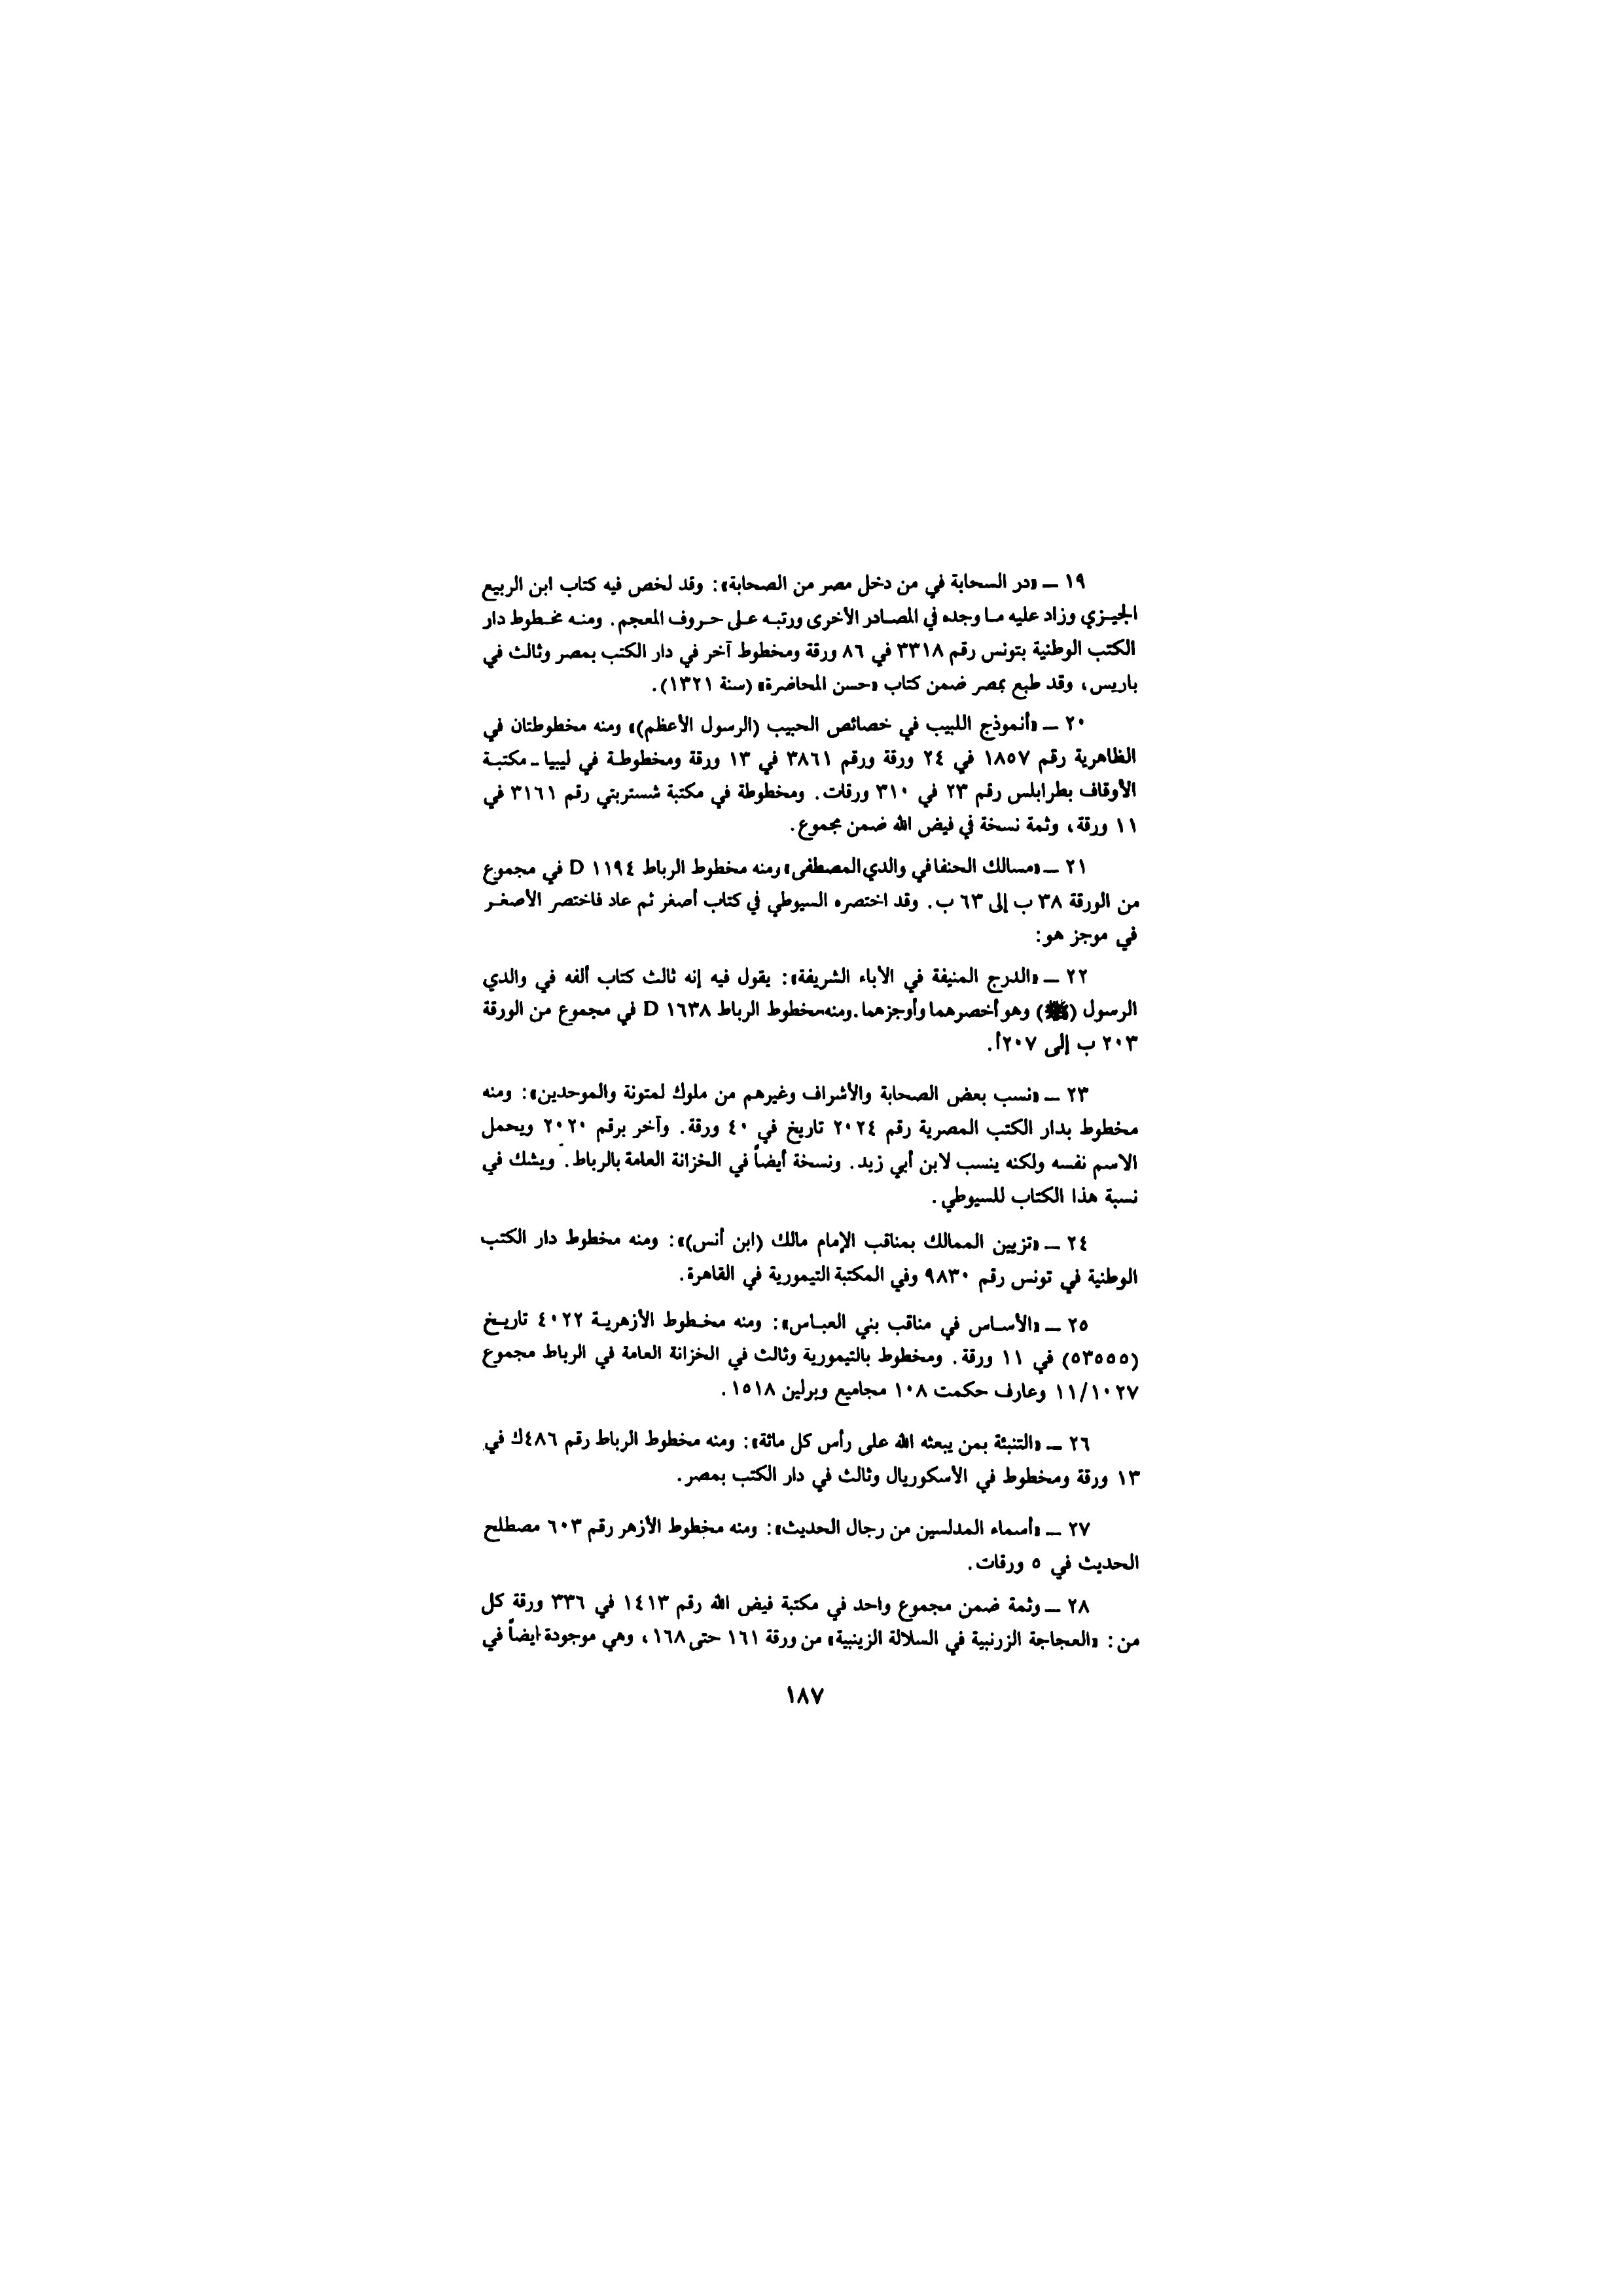 ١٩ ــ «در السحابة في من دخل مصر من الصحابة»: وقد لخص فيه كتاب ابن الربيع
الجيـزي وزاد عليه مـا وجده في المصـادر الأخرى ورتبـه عـلى حـروف المعجم. ومنـه مخـطوط دار
الكتب الوطنية بتونس رقم ٣٣١٨ في ٨٦ ورقة ومخطوط آخر في دار الكتب بمصر وثالث في
باريس، وقد طبع بمصر ضمن كتاب «حسن المحاضرة» (سنة ١٣٢١).
٢٠ ــ «أنموذج اللبيب في خصائص الحبيب (الرسول الأعظم)» ومنه مخطوطتان في
الظاهرية رقم ١٨٥٧ في ٢٤ ورقة ورقم ٣٨٦١ في ١٣ ورقة ومخطوطـة في ليبيا ـ مكتبـة
الأوقاف بطرابلس رقم ٢٣ في ٣١٠ ورقات. ومخطوطة في مكتبة شستربتي رقم ٣١٦١ في
١١ ورقة، وثمة نسخة في فيض الله ضمن مجموع.
٢١ ــ «مسالك الحنفا في والدي المصطفى» ومنه مخطوط الرباط ١١٩٤ D في مجموع
من الورقة ٣٨ ب إلى ٦٣ ب. وقد اختصره السيوطي في كتاب أصغر ثم عاد فاختصر الأصغـر
في موجز هو:
٢٢ ــ «الدرج المنيفة في الأباء الشريفة»: يقول فيه إنه ثالث كتاب ألفه في والدي
الرسول (ﷺ) وهو أخصرهما وأوجزهما. ومنه مخطوط الرباط ١٦٣٨ D في مجموع من الورقة
٢٠٣ ب إلى ٢٠٧أ.
٢٣ ــ «نسب بعض الصحابة والأشراف وغيرهم من ملوك لمتونة والموحدين»: ومنه
مخطوط بدار الكتب المصرية رقم ٢٠٢٤ تاريخ في ٤٠ ورقة. وآخر برقم ٢٠٢٠ ويحمل
الاسم نفسه ولكنه ينسب لابن أبي زيد. ونسخة أيضاً في الخزانة العامة بالرباط. ويشك في
نسبة هذا الكتاب للسيوطي.
٢٤ ــ «تزيين الممالك بمناقب الإمام مالك (ابن أنس)»: ومنه مخطوط دار الكتب
الوطنية في تونس رقم ٩٨٣٠ وفي المكتبة التيمورية في القاهرة.
٢٥ ــ «الأسـاس في مناقب بني العبـاس»: ومنه مخـطوط الأزهريـة ٤٠٢٢ تاريـخ
(٥٣٥٥٥) في ١١ ورقة. ومخطوط بالتيمورية وثالث في الخزانة العامة في الرباط مجموع
١١/١٠٢٧ وعارف حكمت ١٠٨ مجاميع وبرلين ١٥١٨.
٢٦ ــ «التنبئة بمن يبعثه الله على رأس كل مائة»: ومنه مخطوط الرباط رقم ٤٨٦ك في
١٣ ورقة ومخطوط في الأسكوريال وثالث في دار الكتب بمصر.
٢٧ ــ «أسماء المدلسين من رجال الحديث»: ومنه مخطوط الأزهر رقم ٦٠٣ مصطلح
الحديث في ٥ ورقات.
٢٨ ــ وثمة ضمن مجموع واحد في مكتبة فيض الله رقم ١٤١٣ في ٣٣٦ ورقة كل
من: «العجاجة الزرنبية في السلالة الزينبية» من ورقة ١٦١ حتى ١٦٨، وهي موجودة ايضاً في
١٨٧